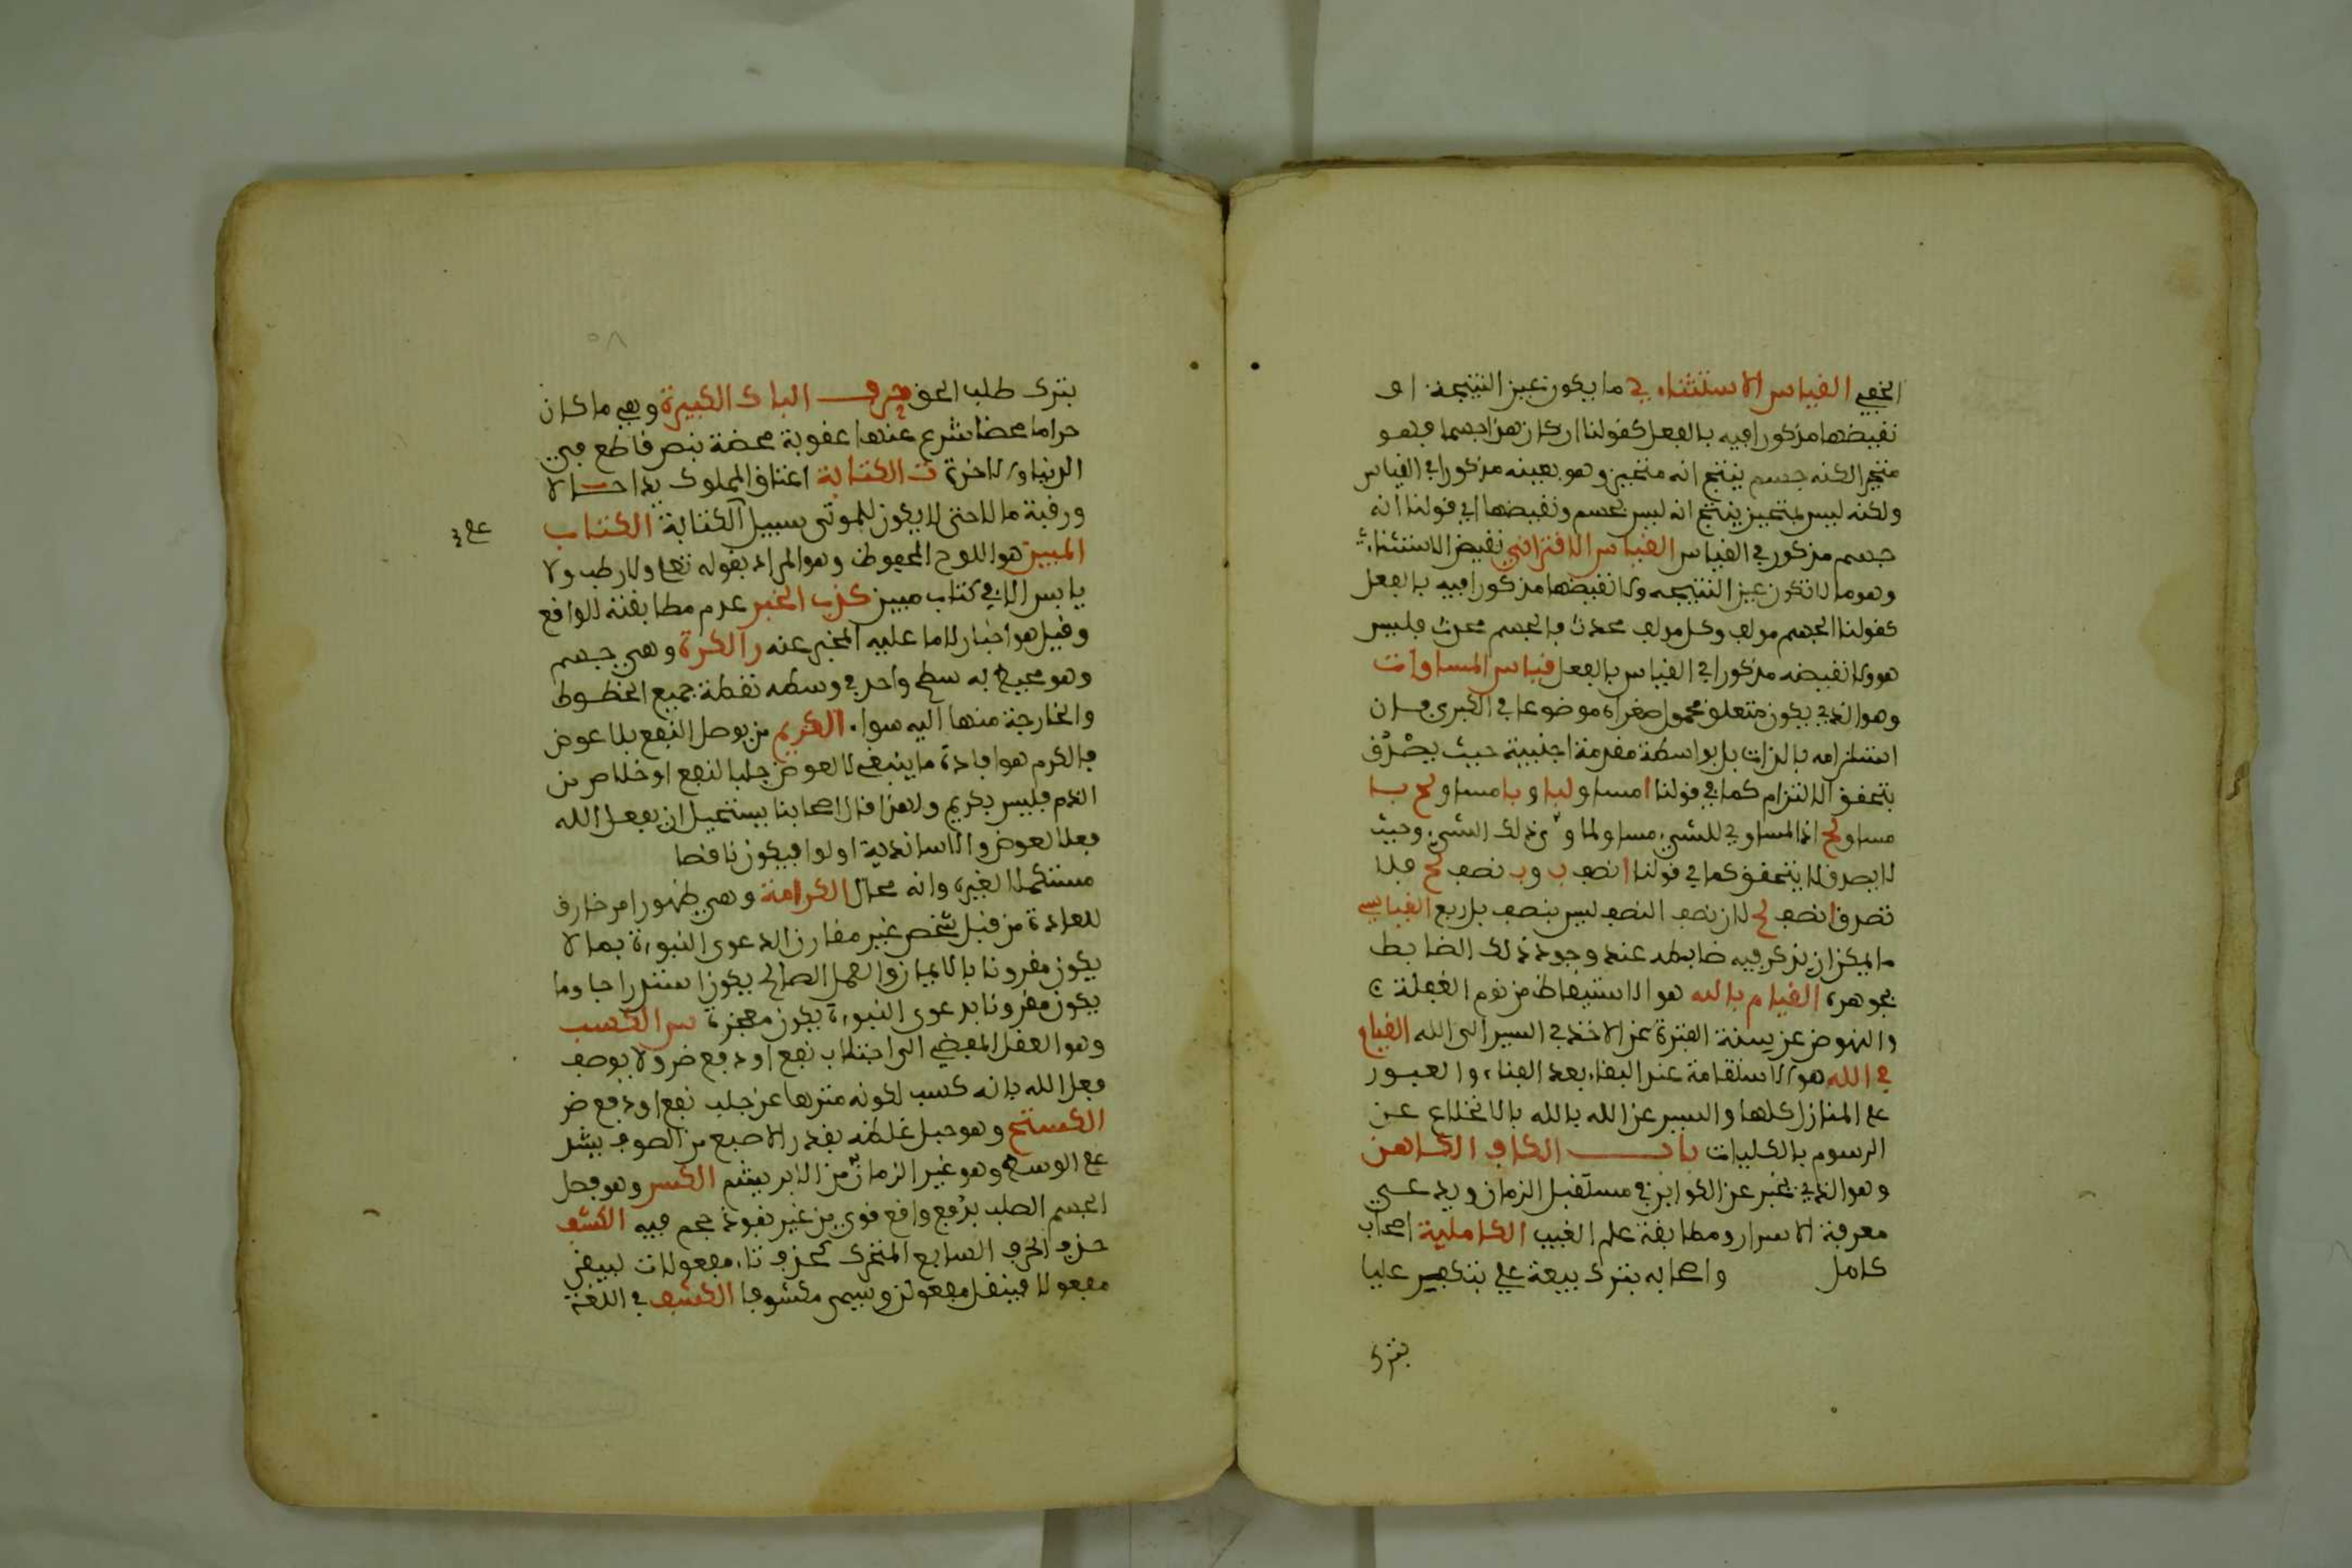 الخفي القياس الاستثناءي ما يكون عين النتيجة او
نقيضها مذكورا فيه بالفعل كقولنا ان كان هذا جسما فهو
متحيز لكنه جسم ينتج انه متحيز وهو بعينه مذكور في القياس
ولكنه ليس بمتحيز ينتج انه ليس بجسم ونقيضها اي قولنا انه
جسم مذكور في القياس القياس الاقتراني نقيض الاستثناءي
وهو ما لا تكون عين النتيجه ولا نقيضها مذكورا فيه بالفعل
كقولنا الجسم مولف وكل مولف محدث فالجسم محدث فليس
هو ولا نقيضه مذكورا في القياس بالفعل قياس المساوات
وهو الذي يكون متعلق محمول صغراه موضوعا في الكبرى فان
استلزامه بالذات بل بواسطة مقدمة اجنبية حيث يصدق
يتحقق الالتزام كما في قولنا ا مساو لبا و با مساو لج با
مساو لج اذ المساوي للشيء مساو لما و ذلك الشيء وحيث
لا يصدق لا يتحقق كما في قولنا ا نصف ب وب نصف لج فلا
تصدق ا نصف لج لان نصف النصف ليس بنصف بل ربع القياسي
ما يمكن ان يذكر فيه ضابطه عند وجود ذلك الضابط
بجوهره القيام بالله هو الاستيقاظ من نوم الغفلة
والنهوض عن سنة الفترة عن الاخذ في السير الى الله القيام
في الله هو الاستقامة عند البقاء بعد الفناء والعبور
على المنازل كلها والسير عن الله بالله بالانخلاع عن
الرسوم بالكليات باب الكاف الكاهن
وهو الذي يخبر عن الكواين في مستقبل الزمان ويدعي
معرفة الاسرار ومطابقة علم الغيب الكاملية اصحاب
كامل واصحابه بترك بيعة علي بتكفير عليا
بترك
بترك طلب الحق حرف الباء الكبيرة وهي ما كان
حراما محضا شرع عنها عقوبة محضة بنص قاطع في
الدنيا والاخرة ت الكتابة اعتاق المملوك يدا حالا
ورقبة مالا حتى لا يكون للموتى سبيل الكتابة الكتاب
المبين هو اللوح المحفوظ وهو المراد بقوله تعلى ولا رطب ولا
يابس الا في كتاب مبين كذب الخبر عدم مطابقته للواقع
وقيل هو اخبار لا ما عليه المخبر عنه ر الكرة وهي جسم
وهو محيط به سطح واحد في وسطه نقطة جميع الخطوط
والخارجة منها اليه سواء الكريم من يوصل النفع بلا عوض
فالكرم هو افادة ما ينبغي لا لعوض جلبا لنفع او خلاص من
الذم فليس بكريم ولهذا قال اصحابنا يستحيل ان يفعل الله
فعلا لعوض والا ستفاد به اولوا فيكون ناقصا
مستكملا لغيره وانه محال الكرامة وهي ظهور امر خارق
للعادة من قبل شخص غير مقارن الدعوى النبوءة بما لا
يكون مقرونا بالايمان والعمل الصالح يكون استدراجا وما
يكون مقرونا بدعوى النبوءة يكون معجزة س الكسب
وهو الفعل المفضي الى اجتلاب نفع او دفع ضر ولا يوصف
فعل الله بانه كسب لكونه منزها عن جلب نفع او دفع ضر
الكستيج وهو حبل غلظه بقدر الاصبع من الصوف يشد
على الوسط وهو غير الزمار من الابريشم الكسر وهو فصل
الجسم الصلب بدفع دافع قوي من غير نفوذ جحم فيه الكشف
حذف الحرف السابع المتحرك كحذف تاء مفعولات ليبقى
مفعولا فينقل مفعولن ويسمى مكشوفا الكشف في اللغة